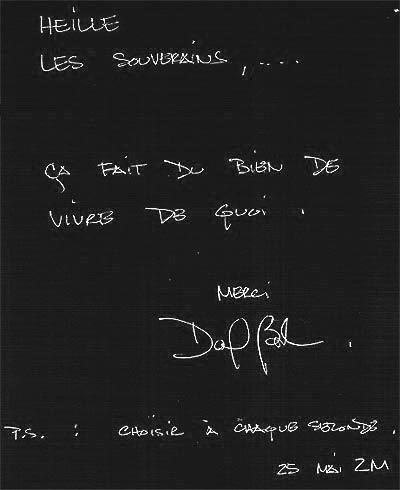 HEILLE
LES SOUVERAINS, ....
ÇA FAIT DU BIEN DE
VIVRE DE QUOI .
MERCI
P.S. : CHOISIR À CHAQUE SECONDE.
25 MAI 2M